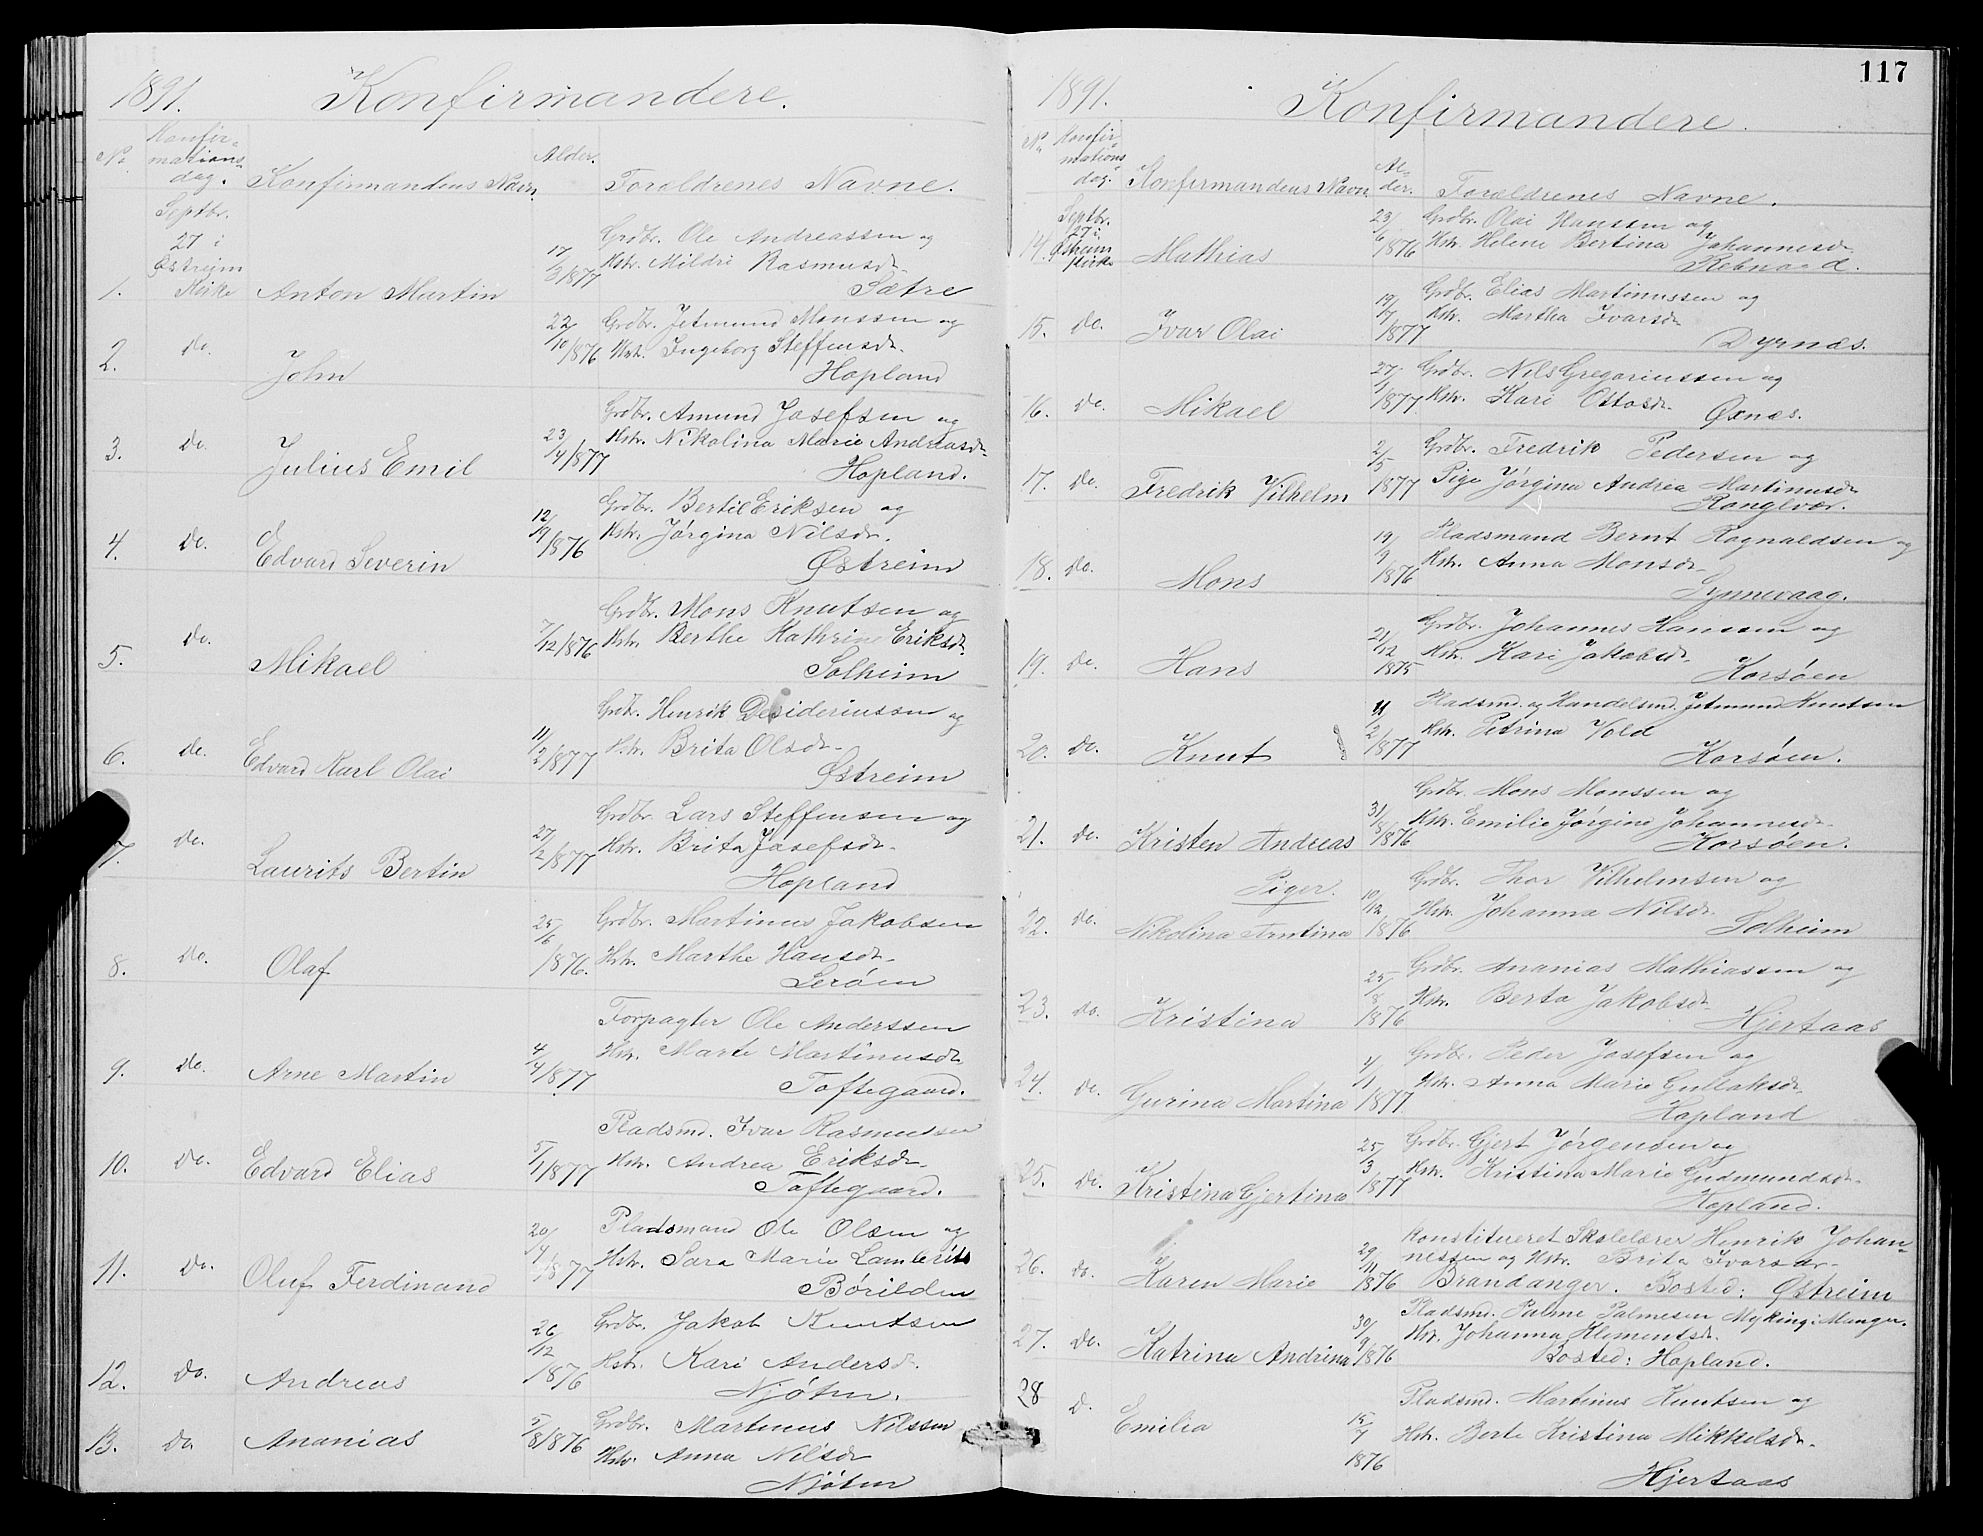 1891. Konfirmandere.
No. Konfir- mations- dag. Konfirmandens Navn. Alder. Forældrenes Navne.
1. Septbr. 27 i Østreim Kirke Anton Martin 17/3/1877 Grdbr. Ole Andreassen og
Hstr. Mildri Rasmusdr.
Sætre
2. do. John 22/10/1876 Grdbr. Jetmund Monssen og
Hstr. Ingeborg Steffensdr.
Hopland
3. do. Julius Emil 23/4/1877 Grdbr. Amund Josefsen og
Hstr. Nikolina Marie Andreasdr.
Hopland.
4. do. Edvard Severin 12/9/1876 Grdbr. Bertil Eriksen og
Hstr. Jørgina Nilsdr.
Østreim
5. do. Mikael 7/12/1876 Grdbr. Mons Knutsen og
Hstr. Berthe Kathrine Eriksdr.
Solheim
6. do. Edvard Karl Olai 11/2/1877 Grdbr. Henrik Desideriussen og
Hstr. Brita Olsdr.
Østreim
7. do. Laurits Bertin 27/2/1877 Grdbr. Lars Steffensen og
Hstr. Brita Josefsdr.
Hopland
8. do. Olaf 25/6/1876. Grdbr. Martinus Jakobsen
Hstr. Marthe Hansdr.
Lerøen
9. do. Arne Martin 4/4/1877 Forpagter Ole Anderssen
Hstr. Marte Martinusdr.
Toftegaard.
10. do. Edvard Elias 5/1/1877 Pladsmd. Ivar Rasmussen
Hstr. Andrea Eriksdr.
Toftegaard.
11. do. Oluf Ferdinand 20/4/1877 Pladsmand Ole Olsen og
Hstr. Sara Marie Lamberts
Børilden
12. do. Andreas 26/12/1876 Grdbr. Jakob Knutsen
Hstr. Kari Andersdr.
Njøten.
13. do. Ananias 5/8/1876 Grdbr. Martinus Nilssen
Hstr. Anna Nilsdr
Njøten
117
1891. Konfirmandere.
No. Konfir- mations dag. Konfirmandens Navn Al- der. Forældrenes Navne.
14. Septbr. 27 i Østreim Kirke Mathias 23/6/1876 Grdbr. Olai Hanssen og
Hstr. Helene Bertina Johannesdr.
Rebnord.
15. do. Ivar Olai 19/7/1877 Grdbr. Elias Martinussen og
Hstr. Martha Ivarsdr.
Dyrnæs.
16. do. Mikael 27/1/1877 Grdbr. Nils Gregoriussen og
Hstr. Kari Ottosdr. Øxnæs.
17. do. Fredrik Vilhelm 2/5/1877 Grdbr. Fredrik Pedersen og
Pige Jørgina Andrea Martinusdr.
Ranglvær.
18. do. Mons 19/9/1876 Pladsmand Bernt Ragnaldsen og
Hstr. Anna Monsdr.
Synnevaag.
19. do. Hans 21/12/1875 Grdbr. Johannes Hanssen og
Hstr. Kari Jakobsdr.
Korsøen
20. do. Knut 11/2/1877 Pladsmd. og Handelsmd. Jetmund Knutsen
Hstr. Petrina Vold
Korsøen.
21. do. Kristen Andreas 31/8/1876 Grdbr. Mons Monssen og
Hstr. Emilie Jørgine Johannesdr.
Korsøen.
Piger.
22. do. Nikolina Arntina 10/12/1876 Grdbr. Thor Vilhelmsen og
Hstr. Johanna Nilsdr.
Solheim
23. do. Kristina 25/8/1876 Grdbr. Ananias Mathiassen og
Hstr. Berta Jakobsdr.
Hjertaas
24. do. Gurina Martina 4/1/1877 Grdbr. Peder Josefsen og
Hstr. Anna Marie Gullaksdr.
Hopland
25. do. Kristina Gjertina 25/3/1877 Grdbr. Gjert Jørgensen og
Hstr. Kristina Marie Gudmundsdr.
Hopland.
26. do. Karen Marie 29/11/1876 Konstitueret Skolelærer Henrik Johan-
nessen og Hstr. Brita Ivarsdr.
Brandanger. Bosted: Østreim
27. do. Katrina Andrina 30/9/1876 Pladsmd. Palme Palmesen Myking i Manger.
Hstr. Johanna Klementsdr.
Bosted: Hopland.
28 d. Emilia 15/7/1876 Pladsmd. Martinus Knutsen og
Hstr. Berte Kristina Mikkelsdr.
Hjertaas